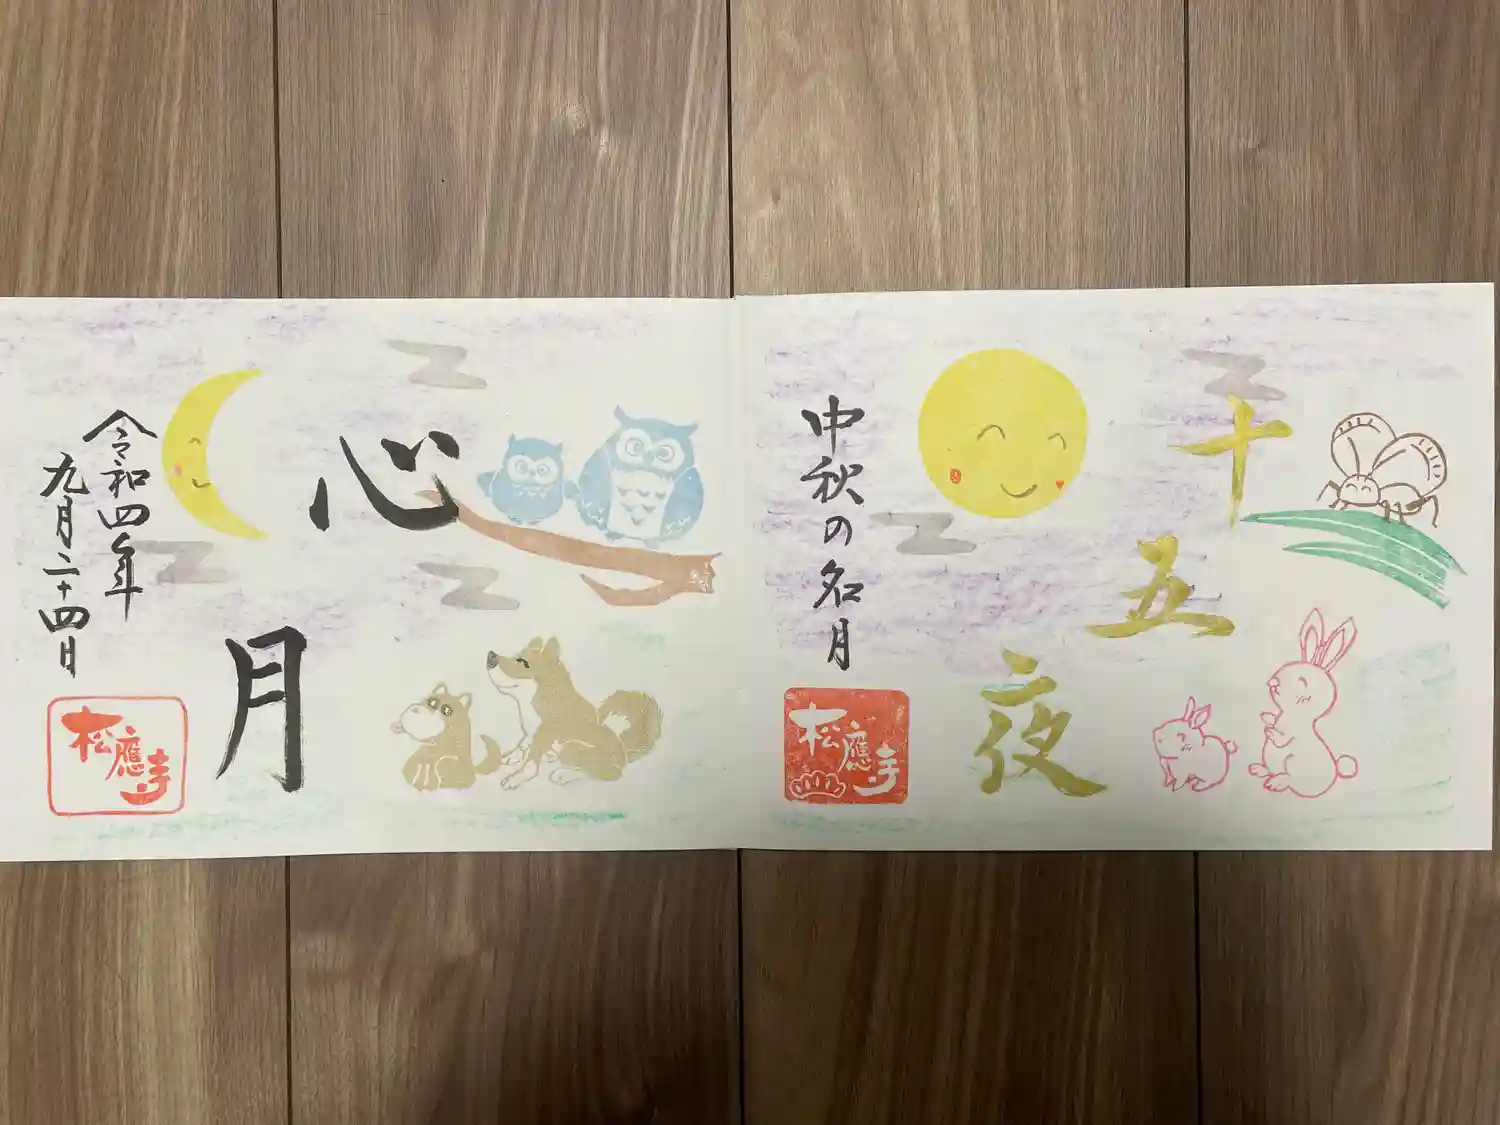 十五夜
中秋の名月
松應寺
心月
令和四年
九月二十四日
松應寺